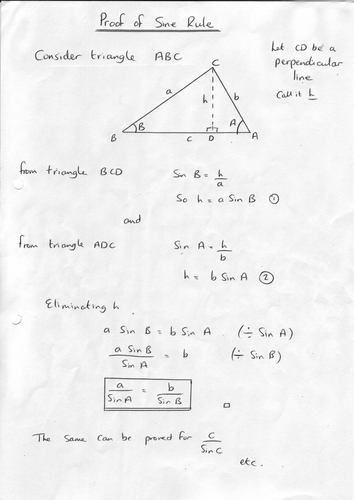 Proof of Sine Rule
Consider triangle ABC
Let CD be a
perpendicular
line
Call it h
C
a
h
b
B
B
A
c
D
A
from triangle BCD
Sin B = h/a
So h = a Sin B ①
and
from triangle ADC
Sin A = h/b
h = b Sin A ②
Eliminating h
a Sin B = b Sin A (÷ Sin A)
a Sin B/Sin A = b (÷ Sin B)
a/Sin A = b/Sin B
□
The same can be proved for c/Sin C
etc.